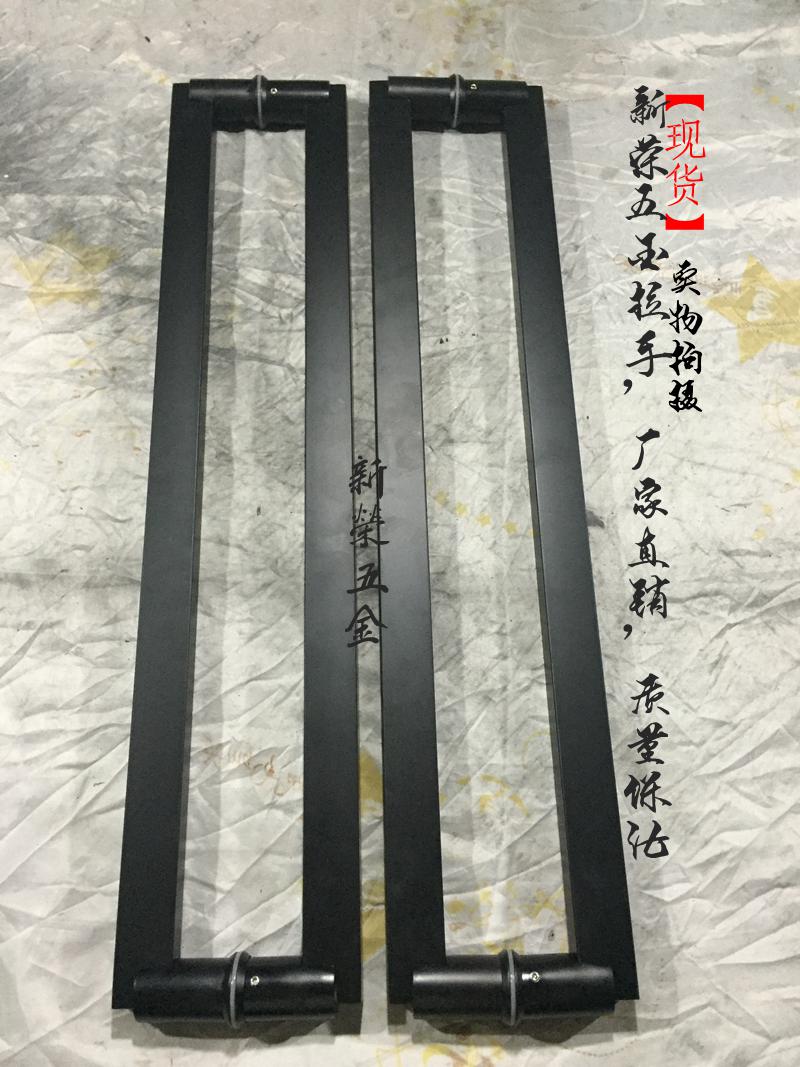 【现货】
新荣五金拉手，厂家直销，质量保证
实物拍摄
新榮五金